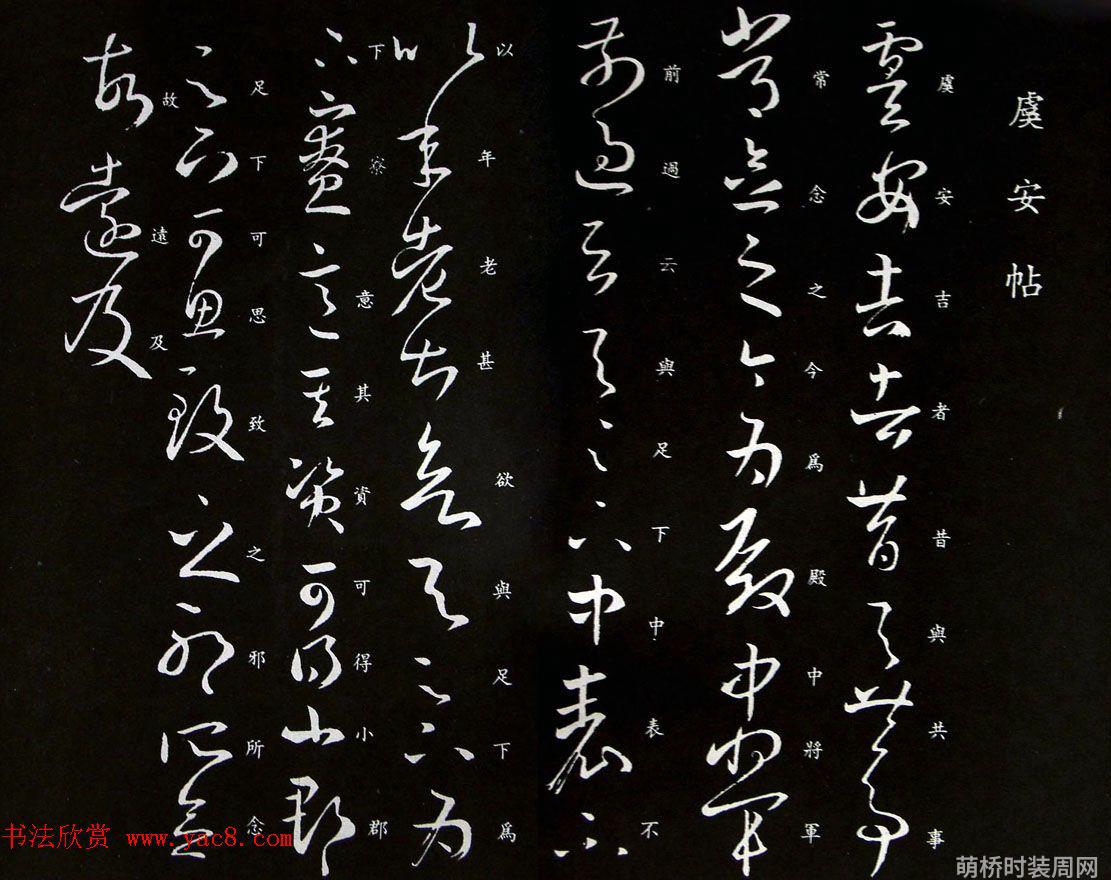 虞安帖
虞安吉者昔與共事
常念之今爲殿中將軍
前過云與足下中表不
以年老甚欲與足下爲
下寮意其資可得小郡
足下可思致之邪所念
故遠及
书法欣赏 www.yac8.com
萌桥时装周网